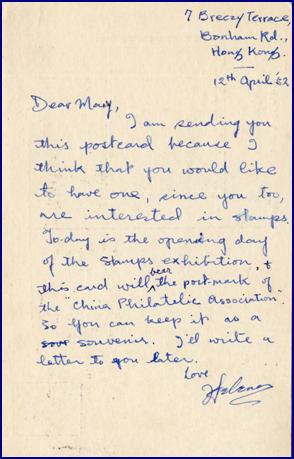 7 Breezy Terrace,
Bonham Rd.,
Hong Kong.
12th April '52
Dear Mary,
I am sending you
this postcard because I
think that you would like
to have one, since you too,
are interested in stamps.
To-day is the opening day
of the stamps exhibition, &
this card will bear the postmark of
the "China Philatelic Association".
So you can keep it as a
souvenir. I'll write a
letter to you later.
Love
Helena